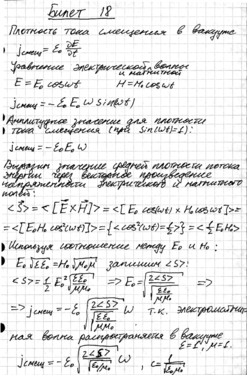 Билет 18
Плотность тока смещения в вакууме
jсмещ = ε₀ ∂E/∂t
Уравнение электрической волны
и магнитной
E = E₀ cosωt H = H₀ cosωt
jсмещ = -ε₀ E₀ ω sin(ωt)
Амплитудное значение для плотности
тока смещения (при sin(ωt)=1):
jсмещ = -ε₀ E₀ ω
Выразим значение средней плотности потока
энергии через векторное произведение
напряженности электрического и магнитного
полей:
<S> = <[E⃗×H⃗]> = <[E₀ cos(ωt) × H₀ cos(ωt)]> =
= <[E₀H₀ cos²(ωt)]> = {<cos²(ωt)> = 1/2} = <1/2 E₀H₀>
Используя соотношение между E₀ и H₀:
E₀√(εε₀) = H₀√(μ₀μ) запишем <S>:
<S> = 1/2 E₀² √(εε₀/μμ₀) => E₀ = √(2<S>/√(εε₀/μμ₀)) =>
=> jсмещ = -ε₀ √(2<S>/√(εε₀/μμ₀)) ω т.к. электромагнит-
ная волна распространяется в вакууме
ε=1, μ=1.
jсмещ = -ε₀ √(2<S>/√(ε₀/μ₀)) ω , c = 1/√(ε₀μ₀)